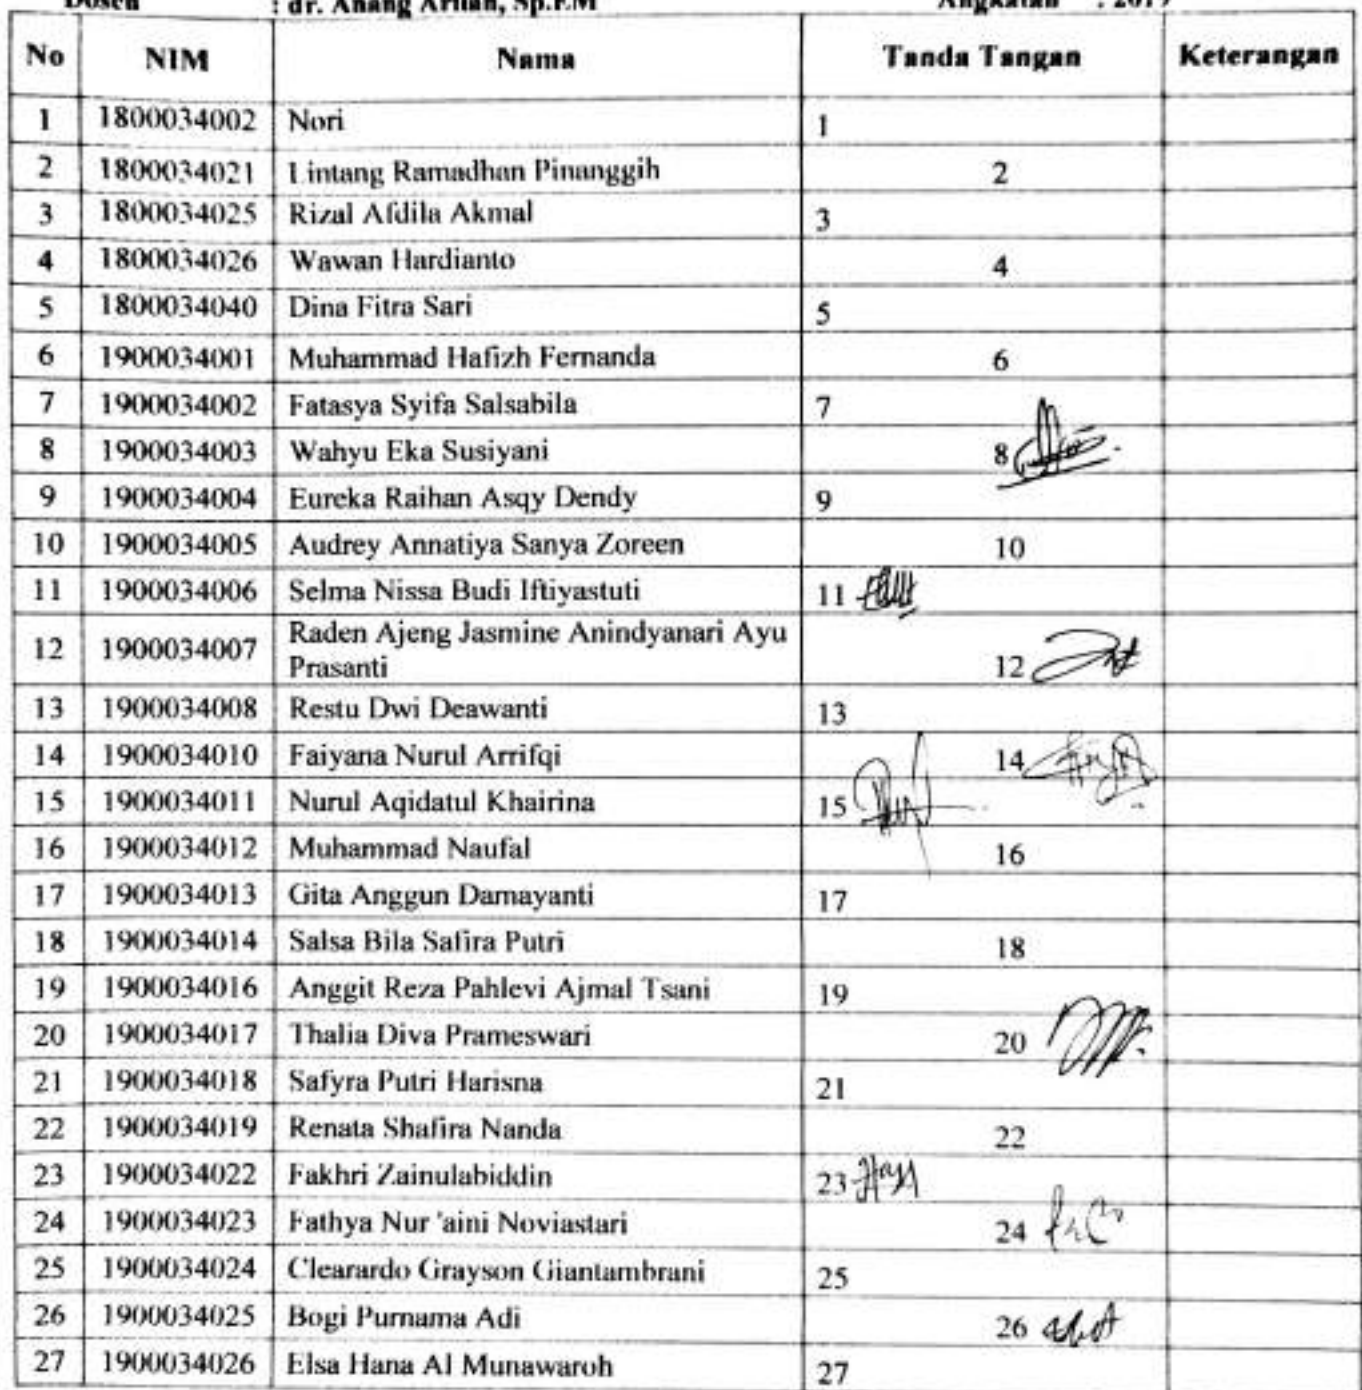 Dosen : dr. Anang Arifian, Sp.FM Angkatan : 2019
No NIM Nama Tanda Tangan Keterangan
1 1800034002 Nori 1
2 1800034021 Lintang Ramadhan Pinanggih 2
3 1800034025 Rizal Afdila Akmal 3
4 1800034026 Wawan Hardianto 4
5 1800034040 Dina Fitra Sari 5
6 1900034001 Muhammad Hafizh Fernanda 6
7 1900034002 Fatasya Syifa Salsabila 7
8 1900034003 Wahyu Eka Susiyani 8
9 1900034004 Eureka Raihan Asqy Dendy 9
10 1900034005 Audrey Annatiya Sanya Zoreen 10
11 1900034006 Selma Nissa Budi Iftiyastuti 11
12 1900034007 Raden Ajeng Jasmine Anindyanari Ayu
Prasanti 12
13 1900034008 Restu Dwi Deawanti 13
14 1900034010 Faiyana Nurul Arrifqi 14
15 1900034011 Nurul Aqidatul Khairina 15
16 1900034012 Muhammad Naufal 16
17 1900034013 Gita Anggun Damayanti 17
18 1900034014 Salsa Bila Safira Putri 18
19 1900034016 Anggit Reza Pahlevi Ajmal Tsani 19
20 1900034017 Thalia Diva Prameswari 20
21 1900034018 Safyra Putri Harisna 21
22 1900034019 Renata Shafira Nanda 22
23 1900034022 Fakhri Zainulabiddin 23
24 1900034023 Fathya Nur 'aini Noviastari 24
25 1900034024 Clearardo Grayson Giantambrani 25
26 1900034025 Bogi Purnama Adi 26
27 1900034026 Elsa Hana Al Munawaroh 27